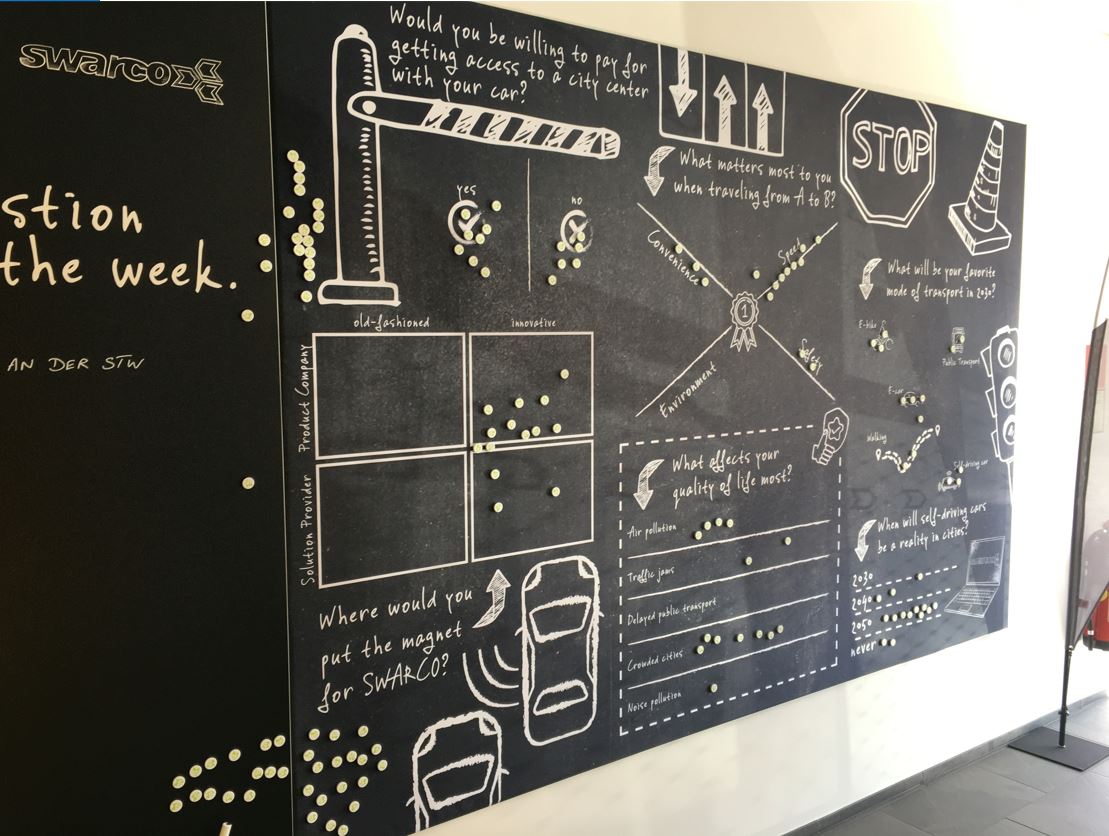 swarco
stion
the week.
AN DER STW
Would you be willing to pay for
getting access to a city center
with your car?
yes
no
old-fashioned
innovative
Product Company
Solution Provider
Where would you
put the magnet
for SWARCO?
What matters most to you
when traveling from A to B?
Convenience
Speed
1
Environment
Safety
What affects your
quality of life most?
Air pollution
Traffic jams
Delayed public transport
Crowded cities
Noise pollution
STOP
What will be your favorite
mode of transport in 2030?
E-bike
Public Transport
E-car
Walking
Self-driving car
When will self-driving cars
be a reality in cities?
2030
2040
2050
never